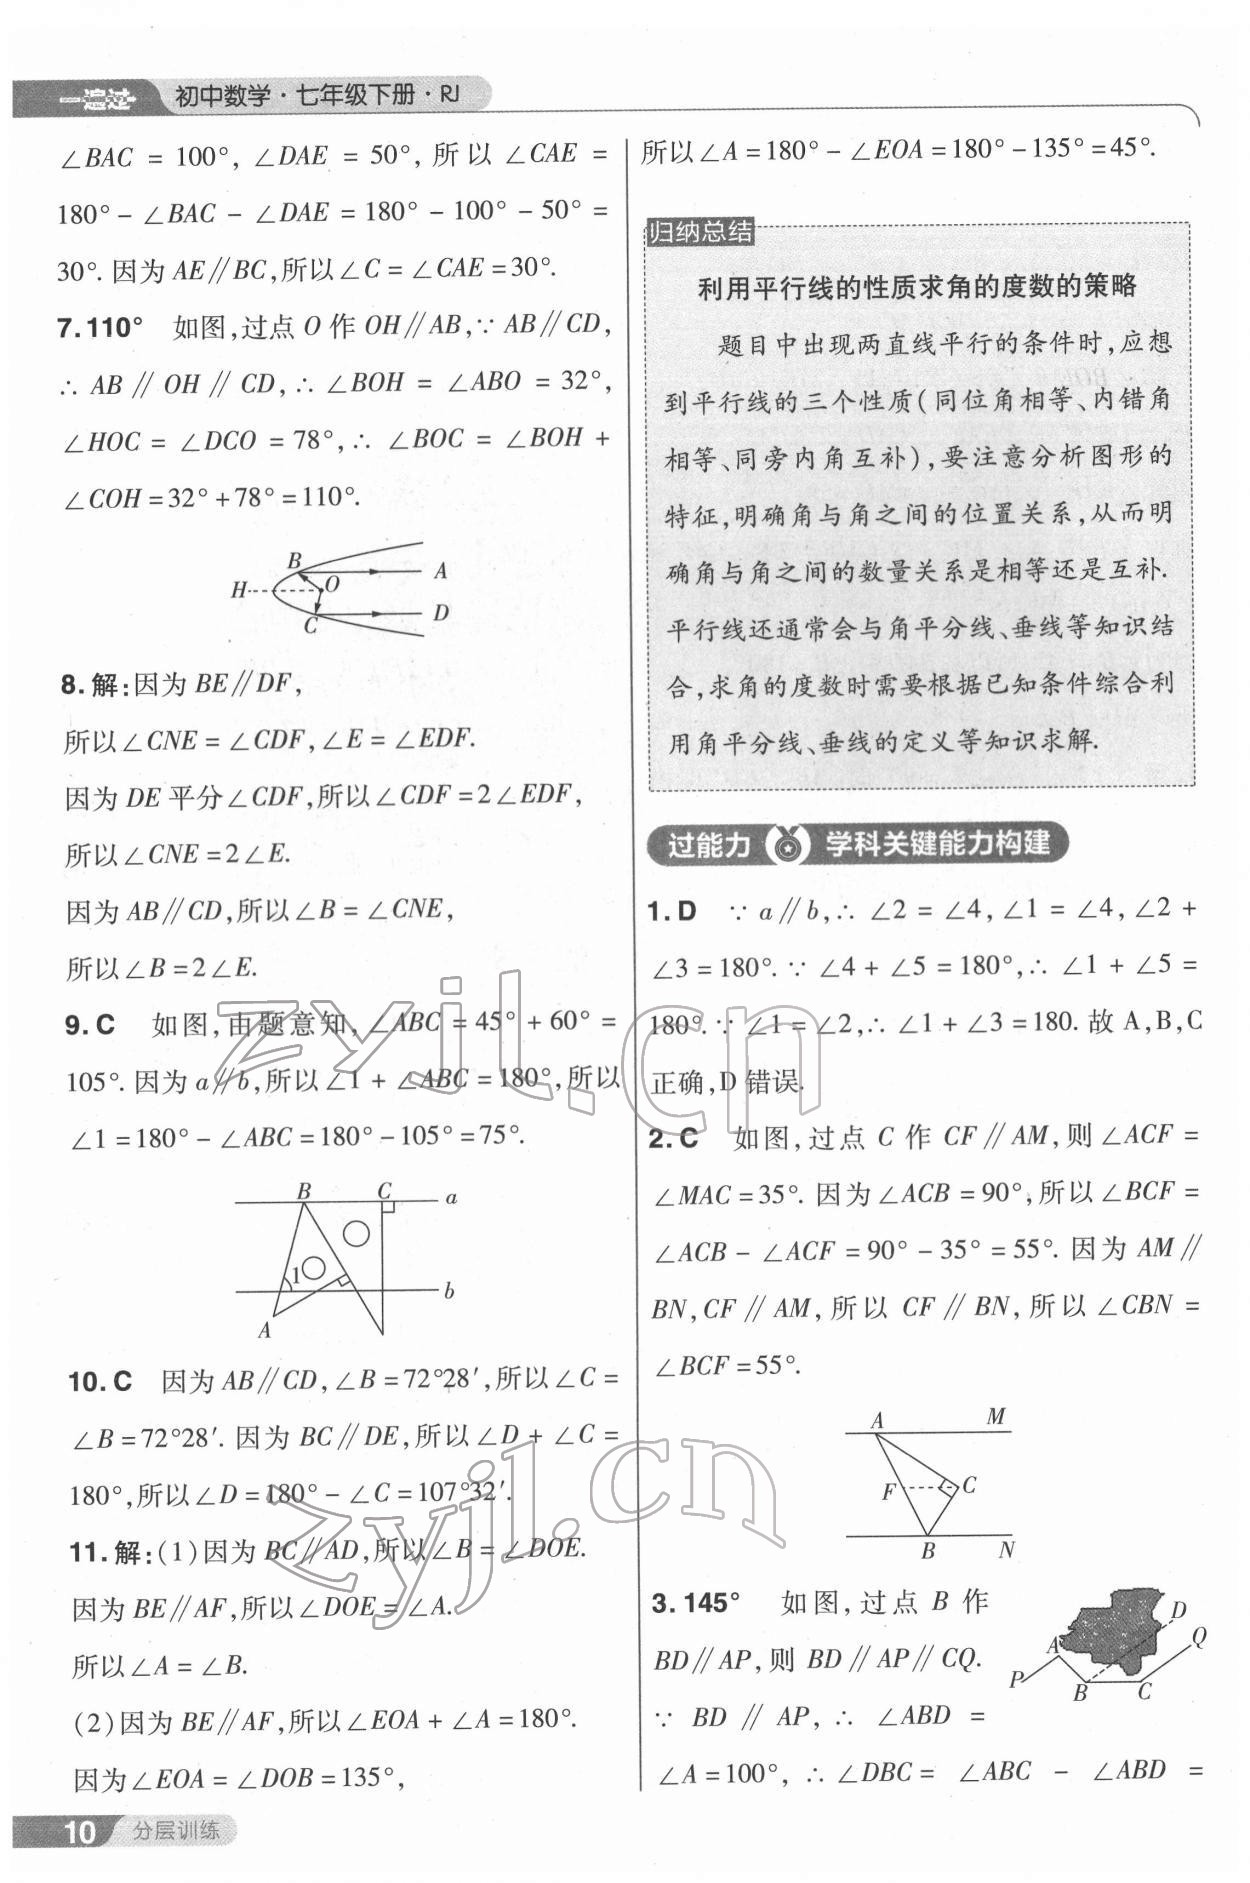 一遍过 初中数学·七年级下册·RJ
∠BAC = 100°, ∠DAE = 50°, 所以 ∠CAE =
180° - ∠BAC - ∠DAE = 180° - 100° - 50° =
30°. 因为 AE∥BC,所以∠C = ∠CAE = 30°.
7. 110° 如图,过点 O 作 OH∥AB,∵ AB∥CD,
∴ AB∥OH∥CD,∴ ∠BOH = ∠ABO = 32°,
∠HOC = ∠DCO = 78°,∴ ∠BOC = ∠BOH +
∠COH = 32° + 78° = 110°.
B
A
H
O
C
D
8. 解:因为 BE∥DF,
所以∠CNE = ∠CDF,∠E = ∠EDF.
因为 DE 平分∠CDF,所以∠CDF = 2∠EDF,
所以∠CNE = 2∠E.
因为 AB∥CD,所以∠B = ∠CNE,
所以∠B = 2∠E.
9. C 如图,由题意知,∠ABC = 45° + 60° =
105°. 因为 a∥b,所以∠1 + ∠ABC = 180°,所以
∠1 = 180° - ∠ABC = 180° - 105° = 75°.
B C a
1
b
A
10. C 因为 AB∥CD,∠B = 72°28′,所以∠C =
∠B = 72°28′. 因为 BC∥DE,所以∠D + ∠C =
180°,所以∠D = 180° - ∠C = 107°32′.
11. 解:(1)因为 BC∥AD,所以∠B = ∠DOE.
因为 BE∥AF,所以∠DOE = ∠A.
所以∠A = ∠B.
(2)因为 BE∥AF,所以∠EOA + ∠A = 180°.
因为∠EOA = ∠DOB = 135°,
10 分层训练
所以∠A = 180° - ∠EOA = 180° - 135° = 45°.
归纳总结
利用平行线的性质求角的度数的策略
题目中出现两直线平行的条件时,应想
到平行线的三个性质(同位角相等、内错角
相等、同旁内角互补),要注意分析图形的
特征,明确角与角之间的位置关系,从而明
确角与角之间的数量关系是相等还是互补.
平行线还通常会与角平分线、垂线等知识结
合,求角的度数时需要根据已知条件综合利
用角平分线、垂线的定义等知识求解.
过能力 学科关键能力构建
1. D ∵ a∥b,∴ ∠2 = ∠4,∠1 = ∠4,∠2 +
∠3 = 180°. ∵ ∠4 + ∠5 = 180°,∴ ∠1 + ∠5 =
180°. ∵ ∠1 = ∠2,∴ ∠1 + ∠3 = 180. 故 A,B,C
正确,D 错误.
2. C 如图,过点 C 作 CF∥AM,则∠ACF =
∠MAC = 35°. 因为∠ACB = 90°,所以∠BCF =
∠ACB - ∠ACF = 90° - 35° = 55°. 因为 AM∥
BN,CF∥AM,所以 CF∥BN,所以∠CBN =
∠BCF = 55°.
A M
F C
B N
3. 145° 如图,过点 B 作
BD∥AP,则 BD∥AP∥CQ.
∵ BD∥AP,∴ ∠ABD =
∠A = 100°,∴ ∠DBC = ∠ABC - ∠ABD =
D
A Q
P
B C
zyjl.cn
zyjl.cn